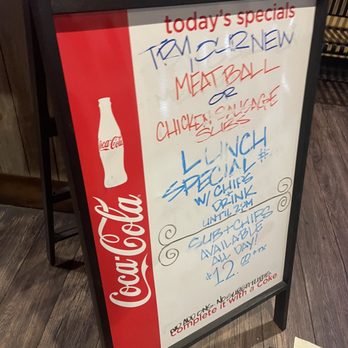 today's specials
TRY OUR NEW
MEATBALL
OR
CHICKEN SAUSAGE
SUBS
LUNCH
SPECIAL
W/ CHIPS
DRINK
UNTIL 2PM
SUB + CHIPS
AVAILABLE
ALL DAY!
$12 + TX
NO SUBSTITUTIONS
complete it with a Coke
Coca-Cola
Coca-Cola